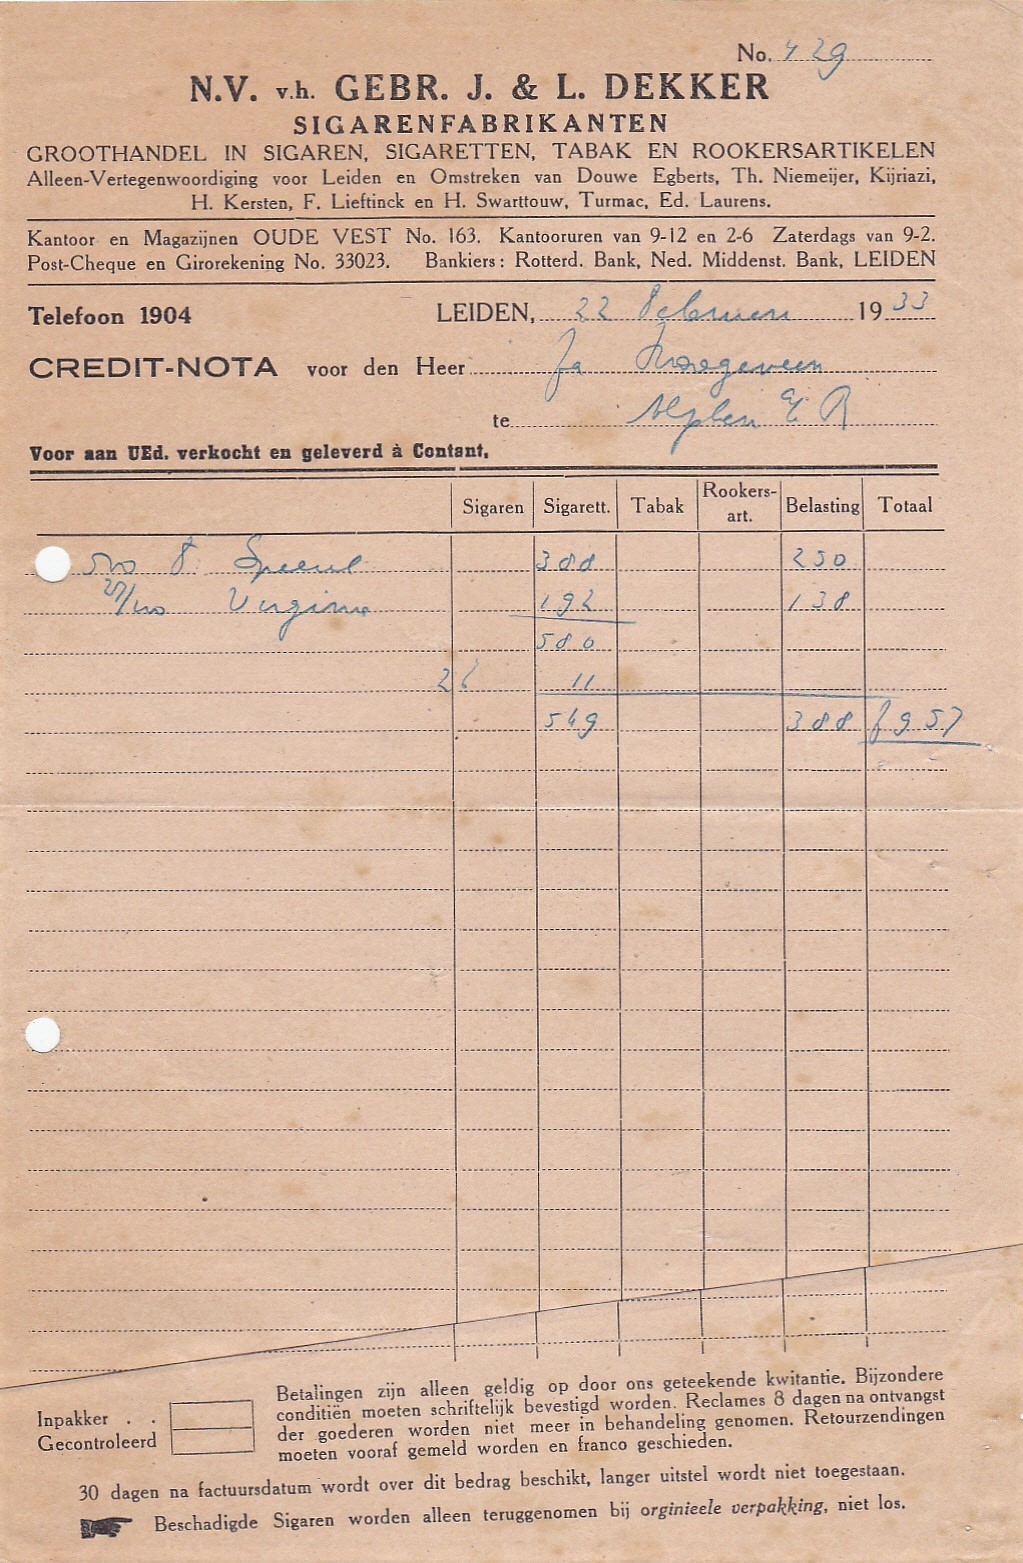 No. 429
N.V. v.h. GEBR. J. & L. DEKKER
SIGARENFABRIKANTEN
GROOTHANDEL IN SIGAREN, SIGARETTEN, TABAK EN ROOKERSARTIKELEN
Alleen-Vertegenwoordiging voor Leiden en Omstreken van Douwe Egberts, Th. Niemeijer, Kijriazi,
H. Kersten, F. Lieftinck en H. Swarttouw, Turmac, Ed. Laurens.
Kantoor en Magazijnen OUDE VEST No. 163. Kantooruren van 9-12 en 2-6 Zaterdags van 9-2.
Post-Cheque en Girorekening No. 33023. Bankiers: Rotterd. Bank, Ned. Middenst. Bank, LEIDEN
Telefoon 1904 LEIDEN, 22 Februari 1933
CREDIT-NOTA voor den Heer fa Hoogeveen
te Alphen a/d R
Voor aan UEd. verkocht en geleverd à Contant.
Sigaren Sigarett. Tabak Rookers-art. Belasting Totaal
500 8 Speciul 388 250
Virginia 192 138
580
11
549 388 f 9 57
Inpakker . .
Gecontroleerd
Betalingen zijn alleen geldig op door ons geteekende kwitantie. Bijzondere
conditiën moeten schriftelijk bevestigd worden. Reclames 8 dagen na ontvangst
der goederen worden niet meer in behandeling genomen. Retourzendingen
moeten vooraf gemeld worden en franco geschieden.
30 dagen na factuursdatum wordt over dit bedrag beschikt, langer uitstel wordt niet toegestaan.
Beschadigde Sigaren worden alleen teruggenomen bij orginieele verpakking, niet los.